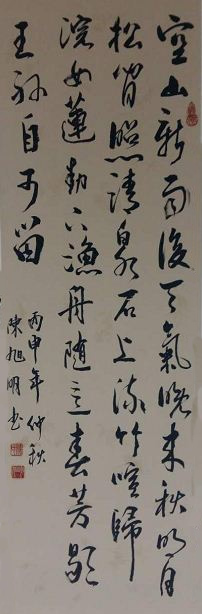 空山新雨後天氣晚來秋明月
松間照清泉石上流竹喧歸
浣女蓮動下漁舟随意春芳歇
王孫自可留
丙申年仲秋
陳旭明书